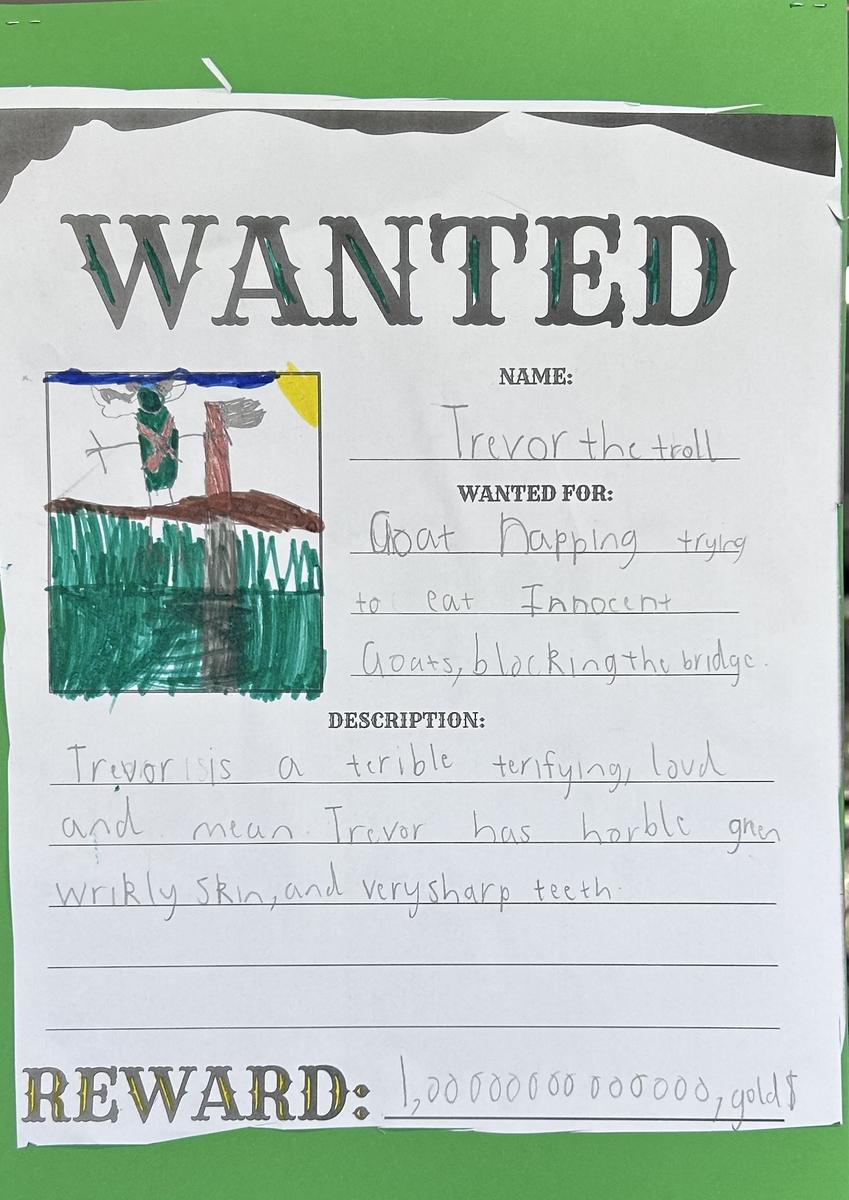 WANTED
NAME:
Trevor the troll
WANTED FOR:
Goat napping trying
to eat Innocent
Goats, blocking the bridge.
DESCRIPTION:
Trevor is is a terible terifying, loud
and mean. Trevor has horble green
wrikly skin, and very sharp teeth.
REWARD: 1,00000000000000, gold $